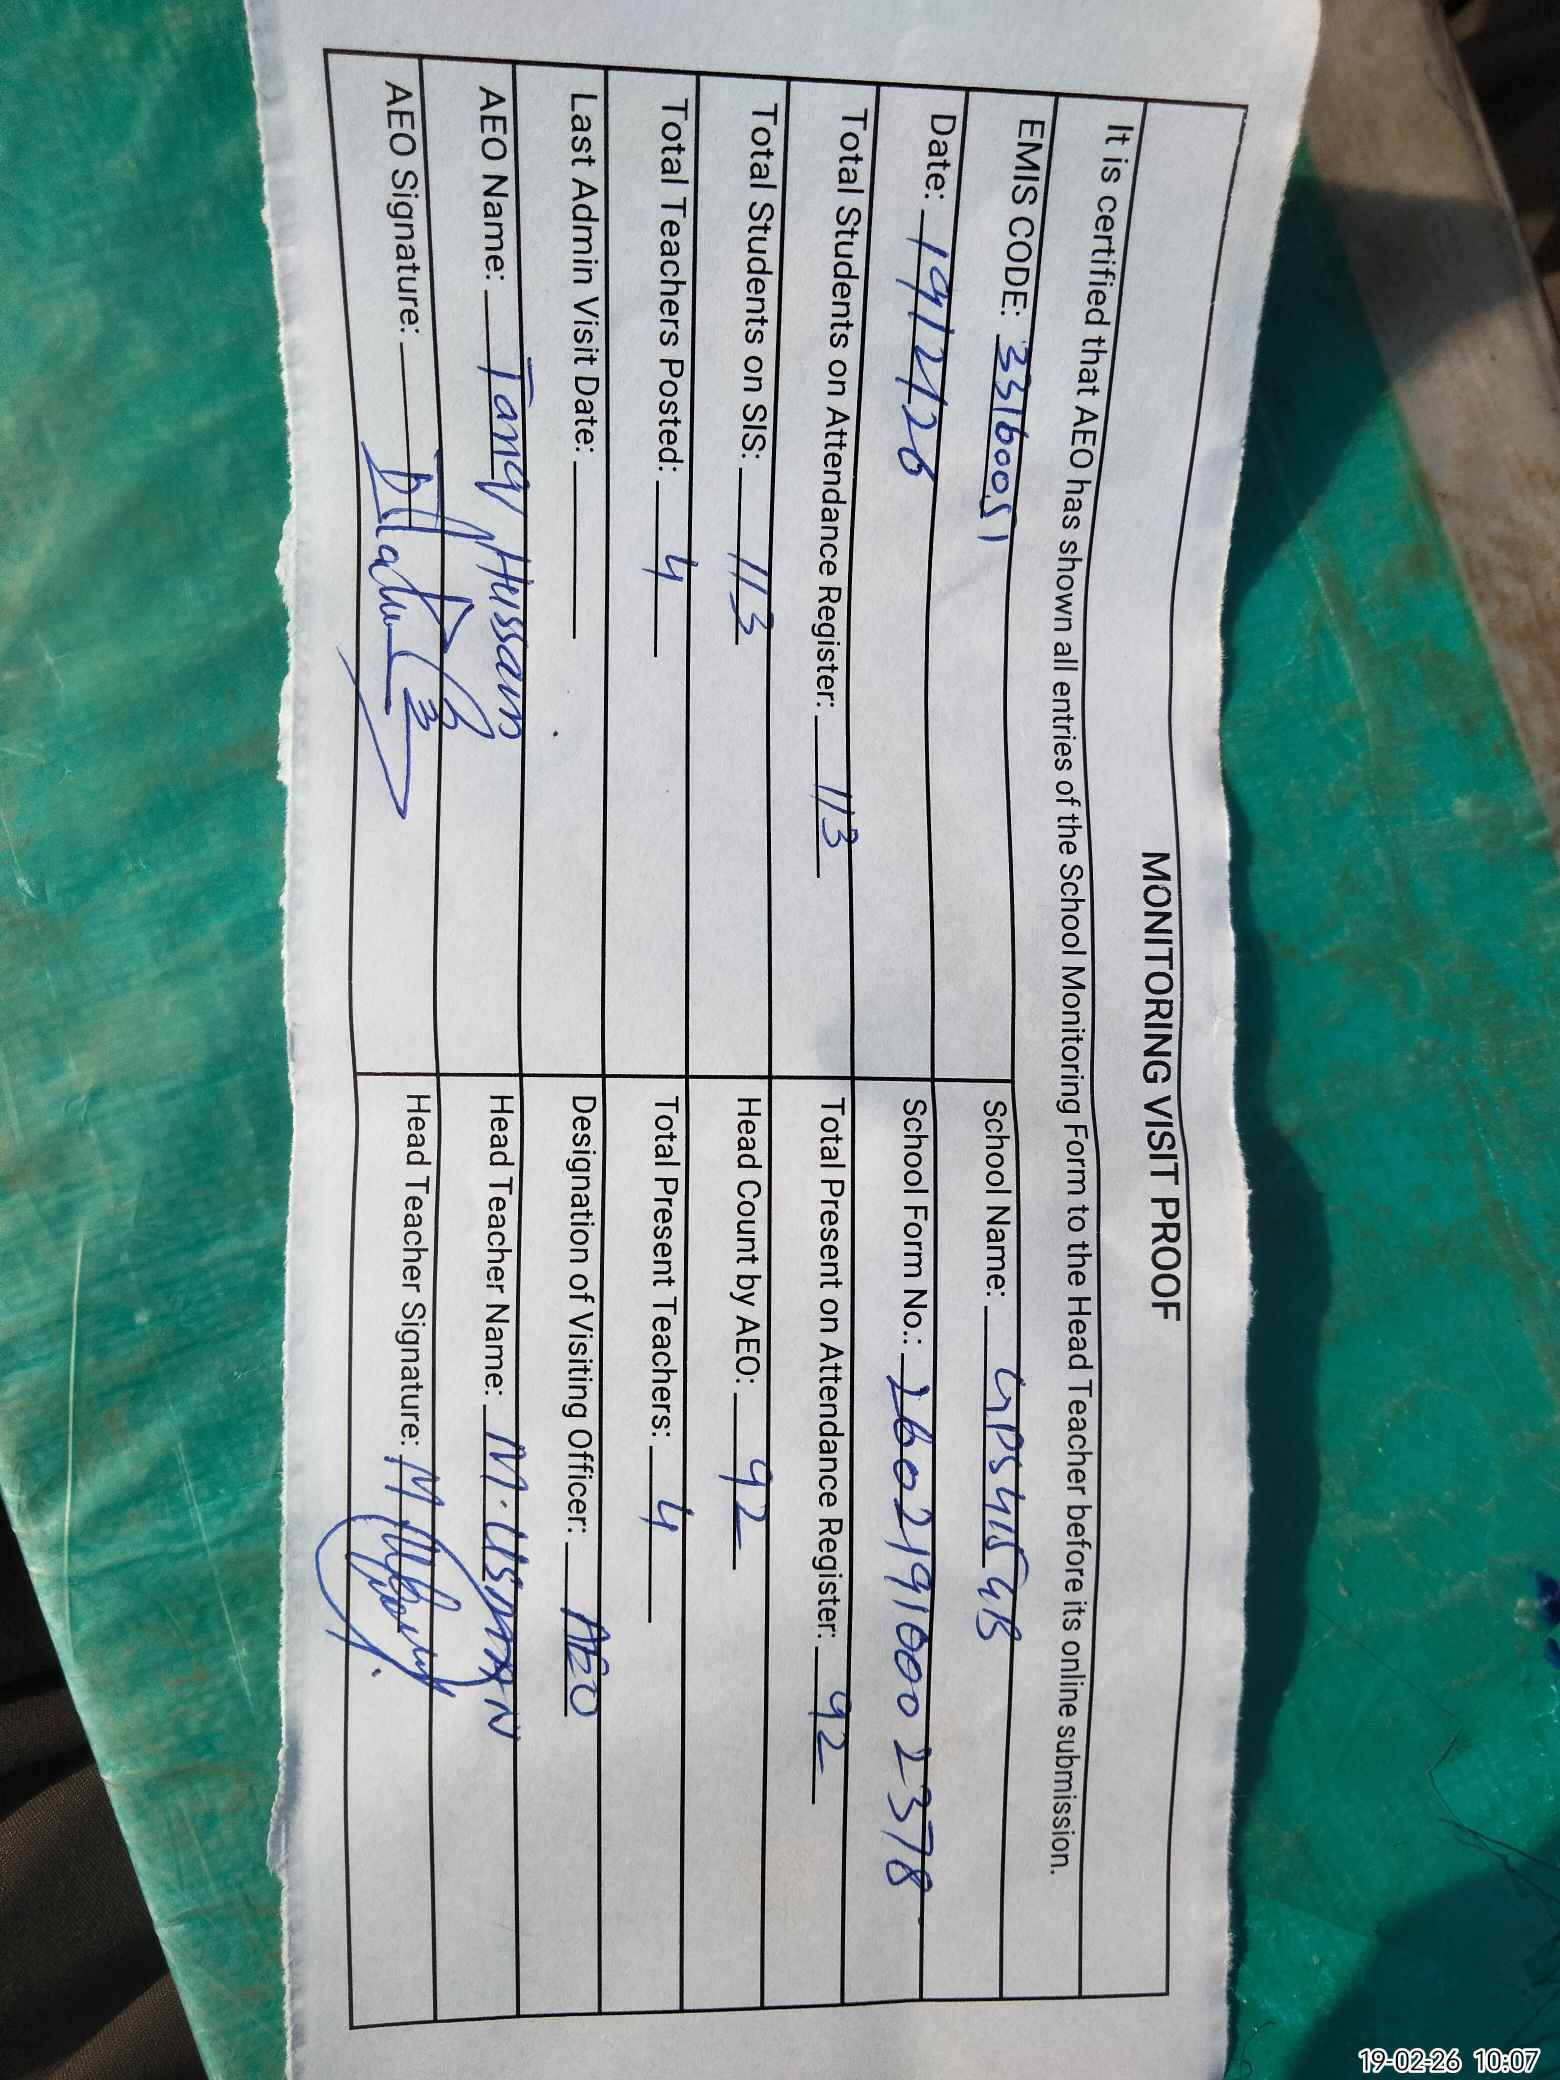 MONITORING VISIT PROOF
It is certified that AEO has shown all entries of the School Monitoring Form to the Head Teacher before its online submission.
EMIS CODE: 33160051 School Name: GPS 415 GB
Date: 19/2/26 School Form No.: 2602191000 2378
Total Students on Attendance Register: 113 Total Present on Attendance Register: 92
Total Students on SIS: 113 Head Count by AEO: 92
Total Teachers Posted: 4 Total Present Teachers: 4
Last Admin Visit Date: Designation of Visiting Officer: AEO
AEO Name: Tariq Hussain Head Teacher Name: M. USMAN
AEO Signature: Head Teacher Signature: M
19-02-26 10:07